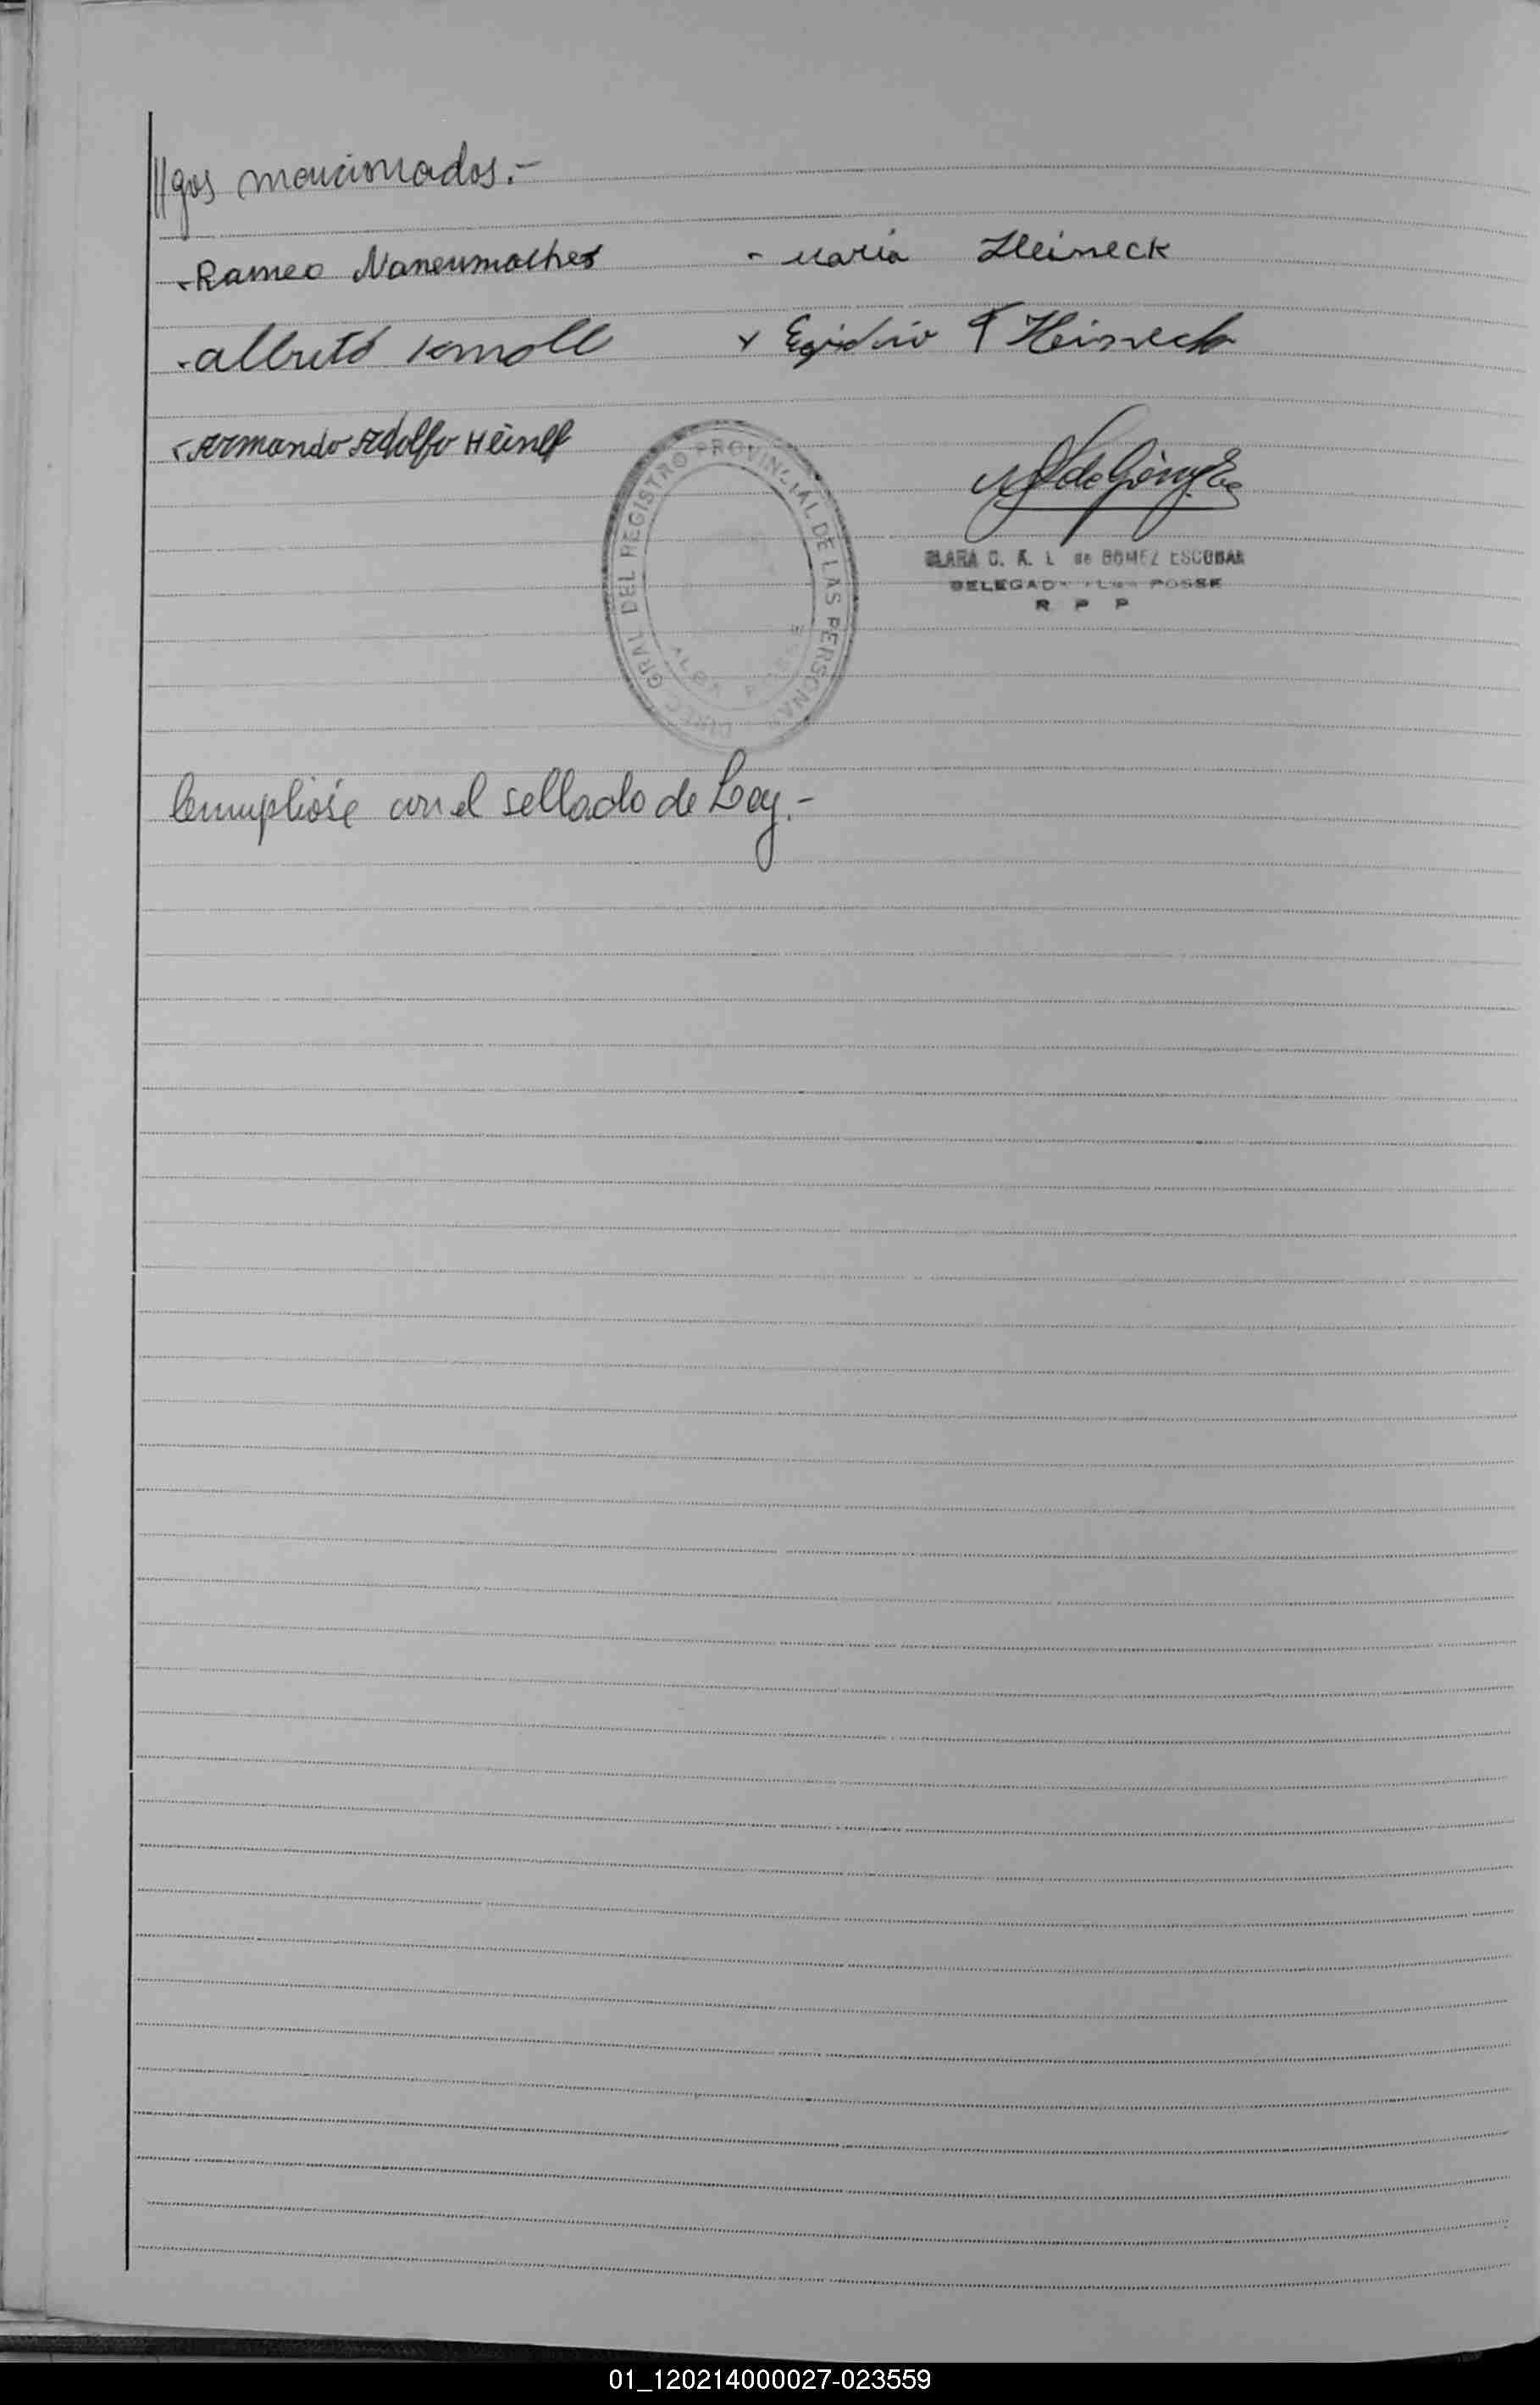 ///gos mencionados.-
- Rameo Nanenmacher - Maria Heineck
- Alberto Kmoll x Egidio F Heineck
Armando Adolfo Heinck
DIREC. GRAL. DEL REGISTRO PROVINCIAL DE LAS PERSONAS
de Gómez
CLARA C. A. L. de GOMEZ ESCOBAR
DELEGADA POSSE
R P P
Cumpliose con el sellado de Ley.-
01_120214000027-023559